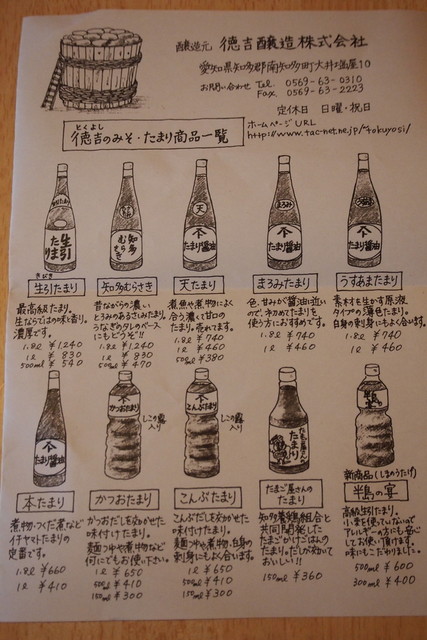 醸造元 徳吉醸造株式会社
愛知県知多郡南知多町大井塩屋10
お問い合わせ Tel. 0569-63-0310
Fax. 0569-63-2223
定休日 日曜・祝日
ホームページURL
http://www.tac-net.ne.jp/~tokuyosi/
とくよし
徳吉のみそ・たまり商品一覧
生引たまり
知多むらさき
天
たまり醤油
まろみ
たまり醤油
たまり醤油
きびき
生引たまり
最高級たまり。
生ならではの味と香り。
濃厚です。
1.8ℓ ¥1,240
1ℓ ¥830
500ml ¥540
知多むらさき
昔ながらの濃い
とろみのあるさいみたまり。
うなぎのタレのベース
にもどうぞ!!
1.8ℓ ¥1,240
1ℓ ¥830
500ml ¥470
天たまり
煮魚や煮物によく
合う濃く甘口の
たまり。売れてます。
1.8ℓ ¥740
1ℓ ¥460
500ml ¥380
まろみたまり
色、甘みが醤油に近い
ので、初めてたまりを
使う方におすすめです。
1.8ℓ ¥740
1ℓ ¥460
うすあまたまり
素材を生かす原液
タイプの薄色たまり。
白身の刺身にもよく合います。
1.8ℓ ¥740
1ℓ ¥460
たまり醤油
かつおたまり
しこの露入り
こんぶたまり
しこの露入り
たまり
半島の宴
本たまり
煮物・つくだ煮など
イチヤマトたまりの
定番です。
1.8ℓ ¥660
1ℓ ¥410
かつおたまり
かつおだしを効かせた
味付けたまり。
麺つゆや煮物など
何にでもお使い下さい。
1ℓ ¥650
500ml ¥410
150ml ¥300
こんぶたまり
こんぶだしを効かせた
味付けたまり。
麺つゆや煮物、白身の
刺身にもよく合います。
1ℓ ¥650
500ml ¥410
150ml ¥300
たまご屋さんの
たまり
知多養鶏組合と
共同開発した
たまごかけごはんの
たまり。だしが効いて
おいしい!!
150ml ¥360
新商品(しまのうたげ)
半島の宴
高級生引たまり。
小麦を使っていないので
アレルギーの方にも安心
してお使い頂けます。
味にもこだわりました。
500ml ¥600
300ml ¥400